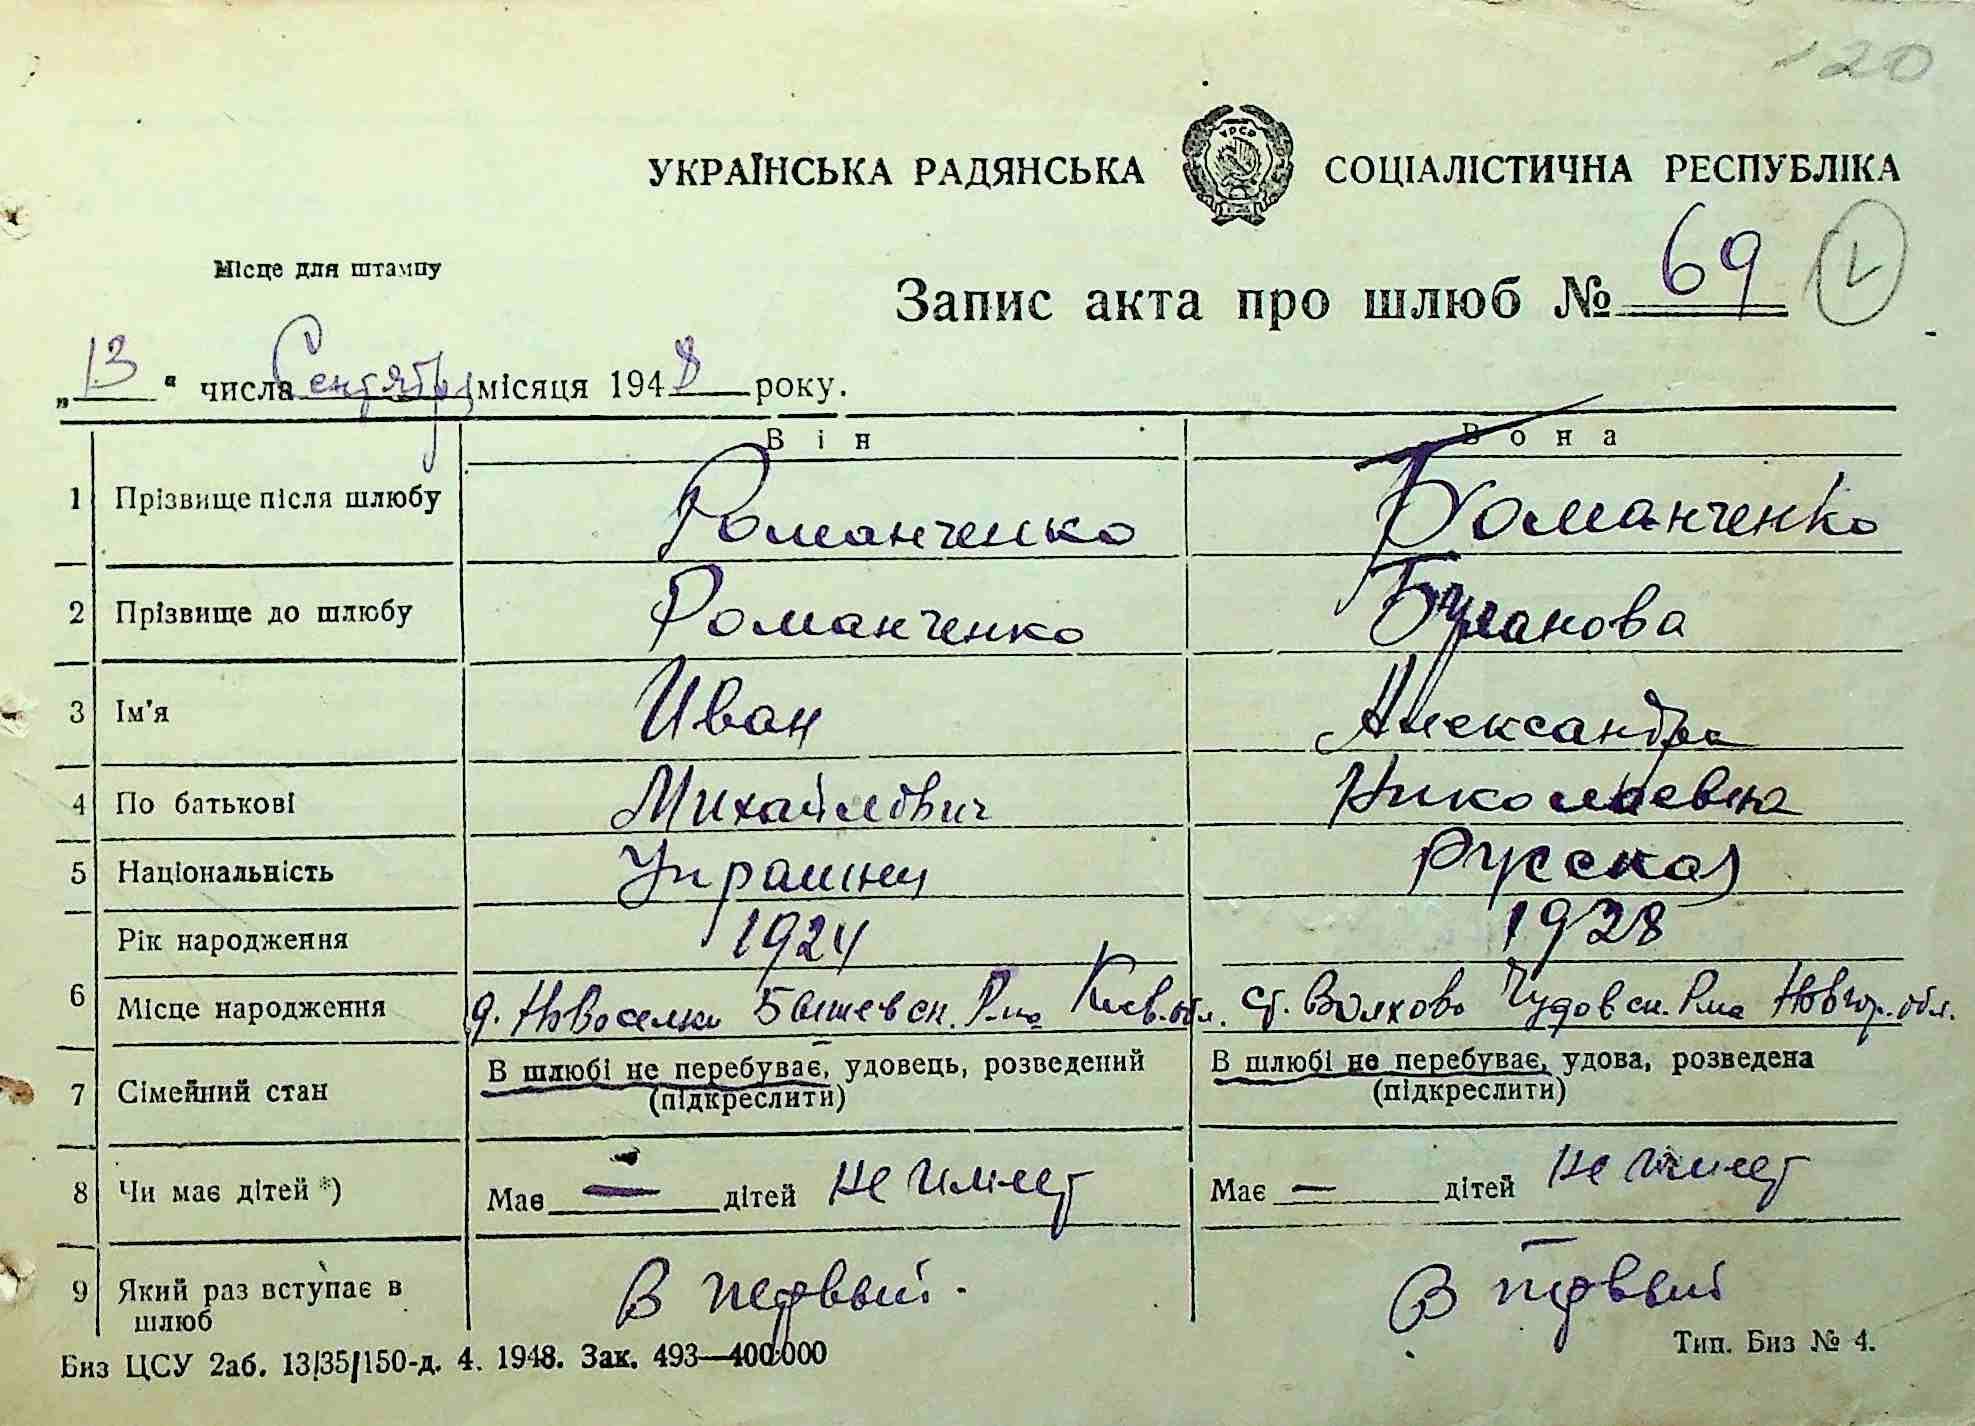 120
УКРАЇНСЬКА РАДЯНСЬКА СОЦІАЛІСТИЧНА РЕСПУБЛІКА
УРСР
Місце для штампу
Запис акта про шлюб № 69
„13“ числа Сентября місяця 1948 року.
Він Вона
1 Прізвище після шлюбу Романченко Романченко
2 Прізвище до шлюбу Романченко Буланова
3 Ім'я Иван Александра
4 По батькові Михайлович Николаевна
5 Національність Украинец Русская
6 Рік народження 1924 1928
Місце народження д. Новоселки Бышевск. Р-на Киев. обл. ст. Волхово Чудовск. Р-на Новгор. обл.
7 Сімейний стан В шлюбі не перебуває, удовець, розведений В шлюбі не перебуває, удова, розведена
(підкреслити) (підкреслити)
8 Чи має дітей *) Має — дітей не имеет Має — дітей не имеет
9 Який раз вступає в шлюб В первый В первый
Тип. Биз № 4.
Биз ЦСУ 2аб. 13/35/150-д. 4. 1948. Зак. 493—400.000